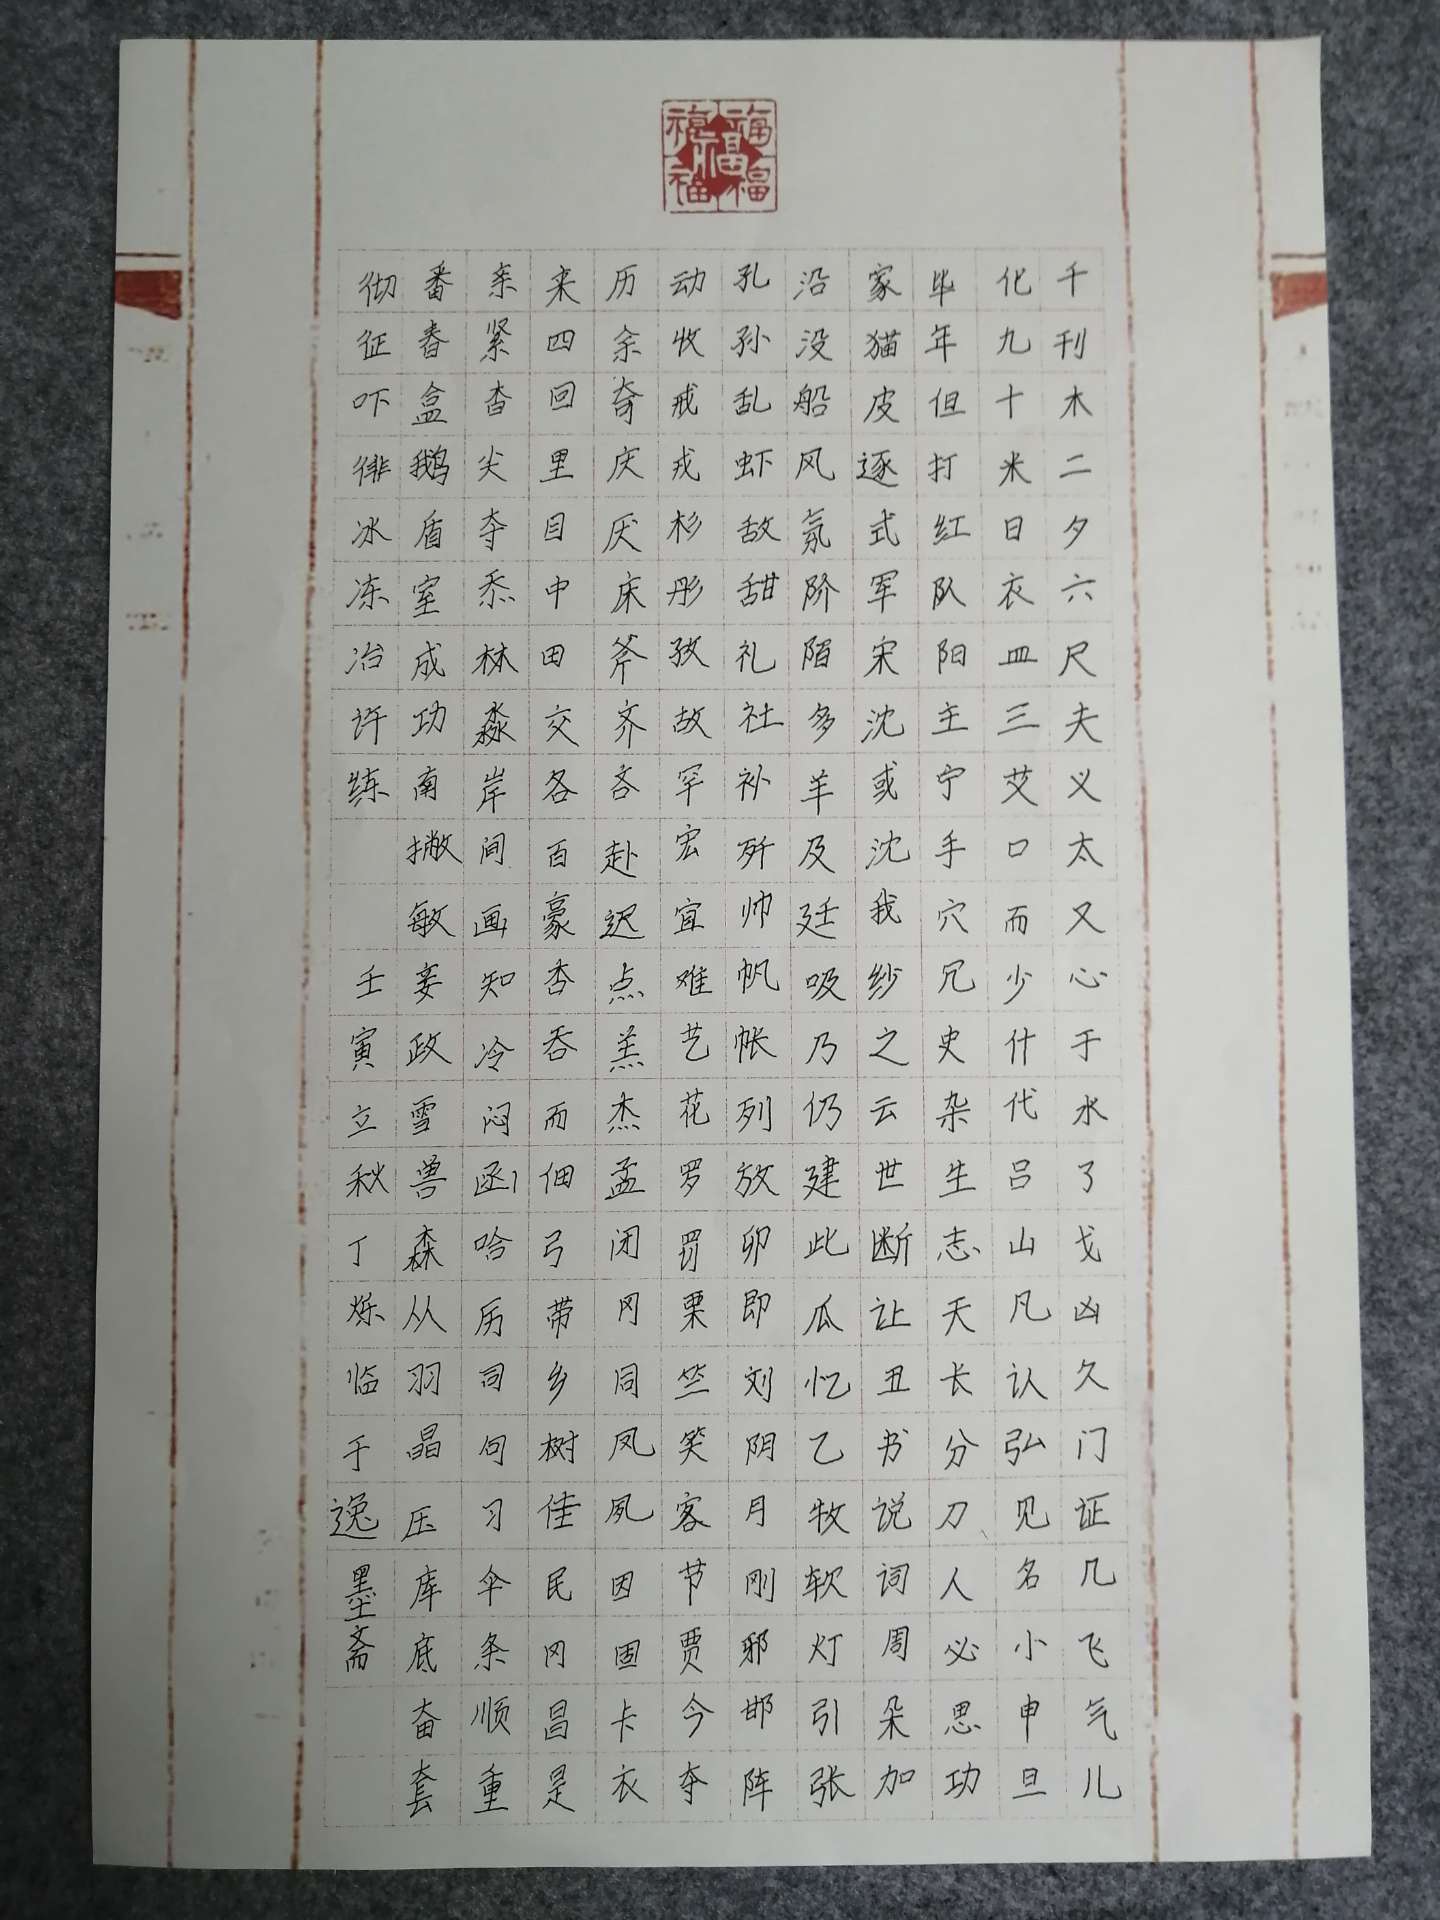 福福福福福
千刊木二夕六尺夫义太又心于水了戈凶久门证几飞气儿
化九十米日衣皿三艾口而少什代吕山凡认弘见名小申旦
毕年但打红队阳主宁手穴冗史杂生志天长分刀人必思功
家猫皮逐式军宋沈或沈我纱之云世断让丑书说词周朵加
沿没船风氛阶陌多羊及廷吸乃仍建此瓜忆乙牧软灯引张
孔孙乱虾敌甜礼社补歼帅帆帐列放卯即刘阴月刚邪邯阵
动收戒戎杉彤孜故罕宏宜难艺花罗罚栗竺笑客节贾今夺
历余奇庆厌床斧齐吝赴迟点羔杰孟闭冈同凤夙因固卡衣
来四回里目中田交各百豪杏吞而佃弓带乡树佳民冈昌是
亲紧杳尖夺忝林淼岸间画知冷闷函哈历司句习伞条顺重
番春盒鹅盾室成功南撇敏妾政雪兽森从羽晶压库底奋套
彻征吓徘冰冻冶许练 壬寅立秋丁烁临于逸墨斋